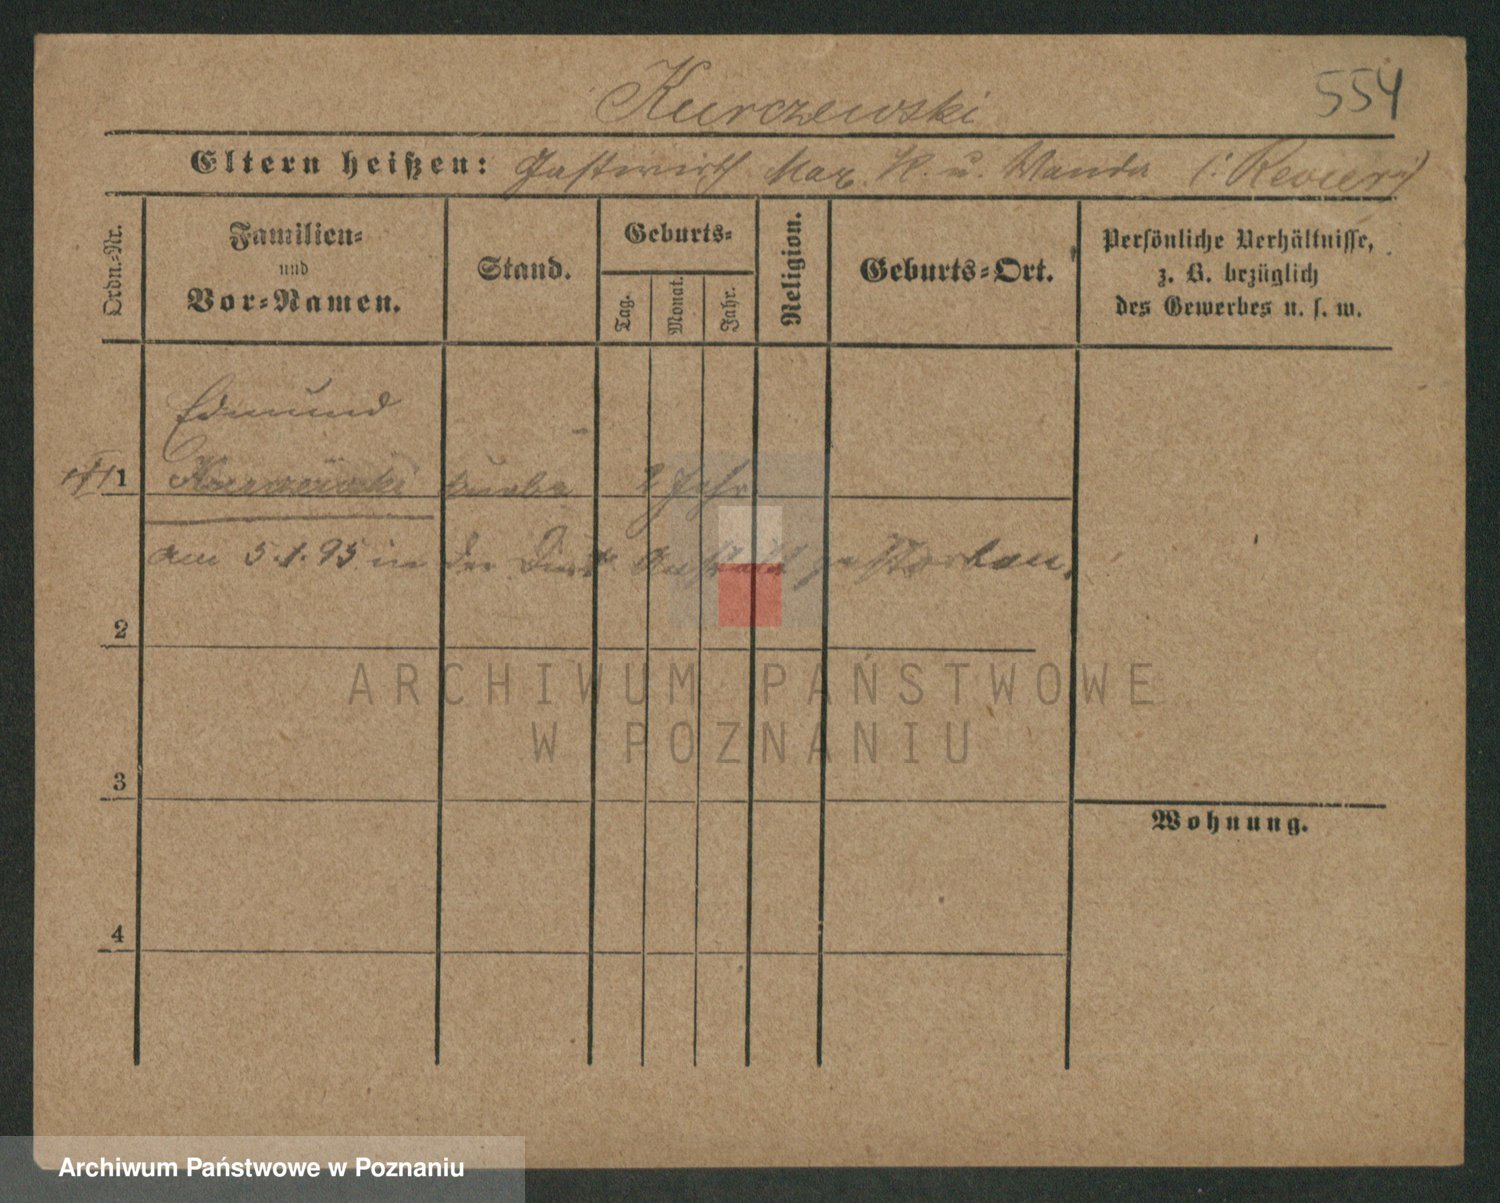 Kurczewski
554
Eltern heißen: Gastwirth Max. K. u. Wanda (: Revier :)
Ordn.-Nr.
Familien-
und
Vor-Namen.
Stand.
Geburts-
Tag.
Monat.
Jahr.
Religion.
Geburts-Ort.
Persönliche Verhältnisse,
z. B. bezüglich
des Gewerbes u. s. w.
Edmund
1 Kurczewski Knabe 2 Jahr
am 5.1.95 in der Anstalt gestorben.
2
ARCHIWUM PAŃSTWOWE
W POZNANIU
3
Wohnung.
4
Archiwum Państwowe w Poznaniu